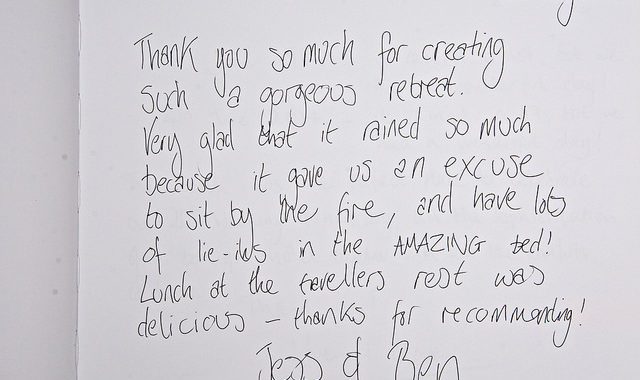 Thank you so much for creating
such a gorgeous retreat.
Very glad that it rained so much
because it gave us an excuse
to sit by the fire, and have lots
of lie-ins in the AMAZING bed!
Lunch at the travellers rest was
delicious – thanks for recommending!
Jess & Ben